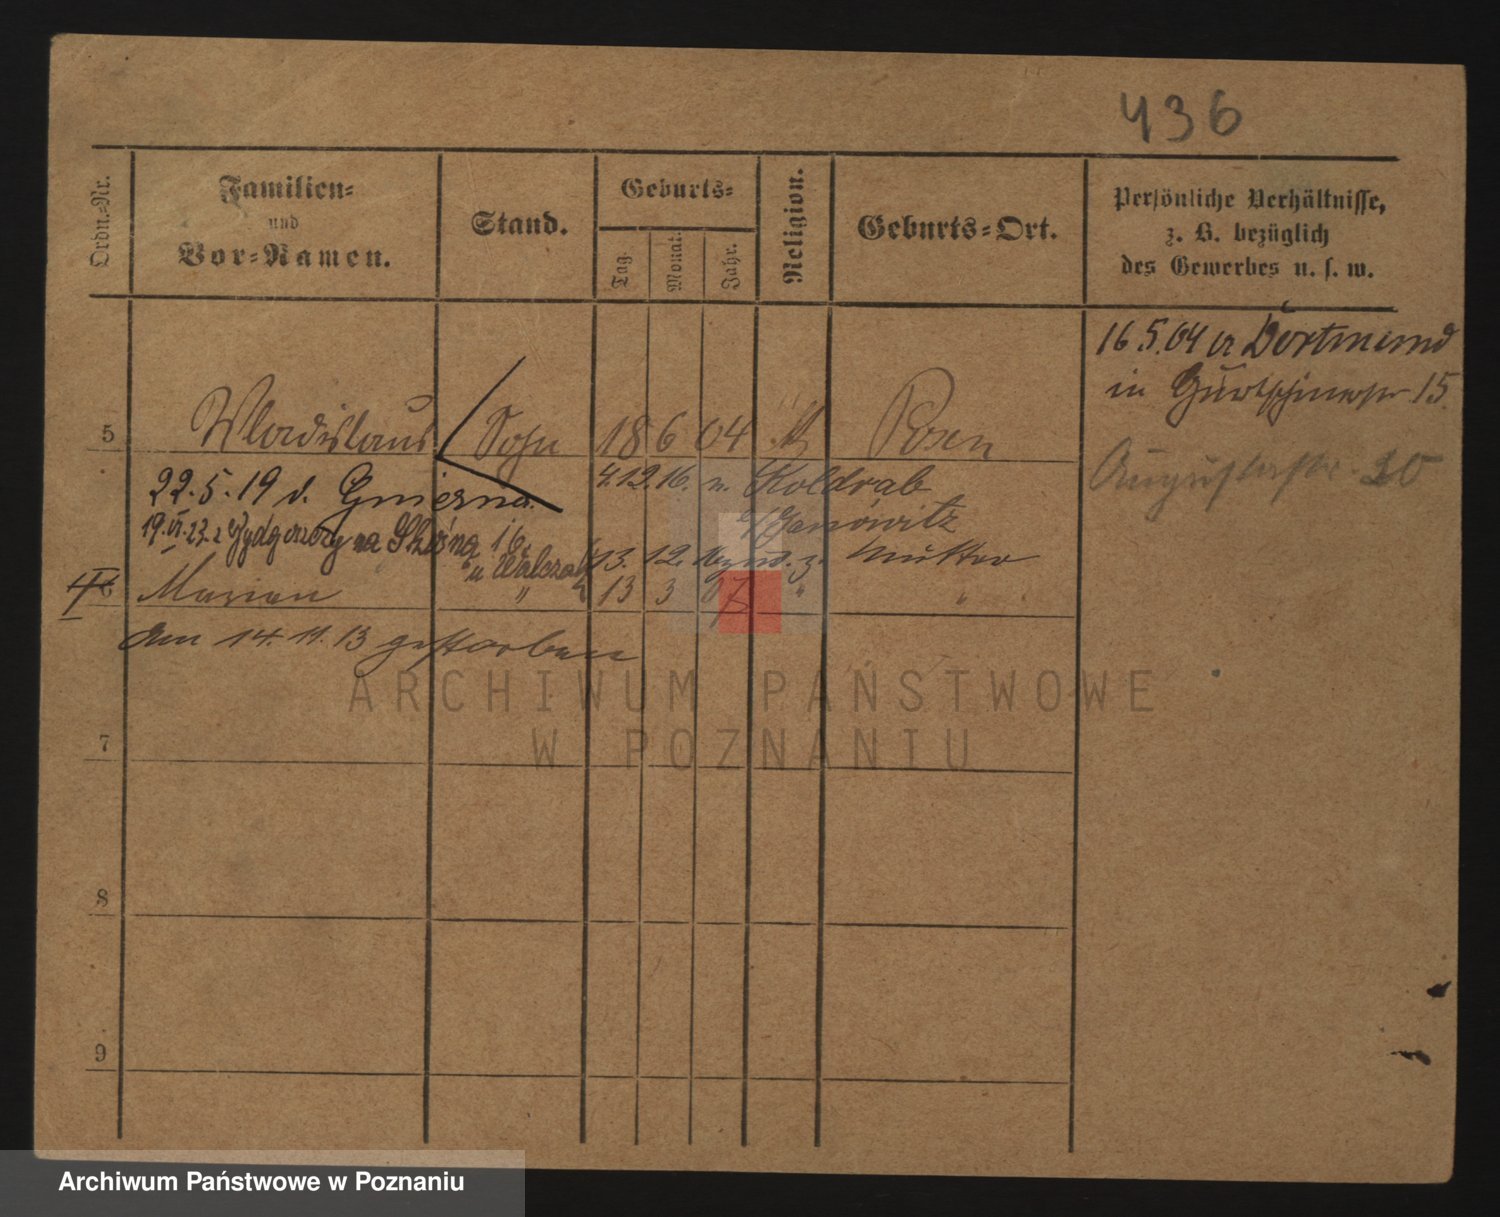 436
Ordn.=Nr.
Familien=
und
Vor=Namen.
Stand.
Geburts=
Tag.
Monat.
Jahr.
Religion.
Geburts=Ort.
Persönliche Verhältnisse,
z. B. bezüglich
des Gewerbes u. s. w.
16.5.04 a Dortmund
in 15.
5 Wladislaus Sohn 18 6 04 K Posen
Augustastr. 20
22.5.19 v. Gniezna.
4.12.16. n. Koldrab
19.VI.23. z Bydgoszczy na 16
u Walczak
13. 12. z. Mutter
6 Marian " 13 3 07 " "
am 14.11.13 gestorben
ARCHIWUM PAŃSTWOWE
W POZNANIU
7
8
9
Archiwum Państwowe w Poznaniu